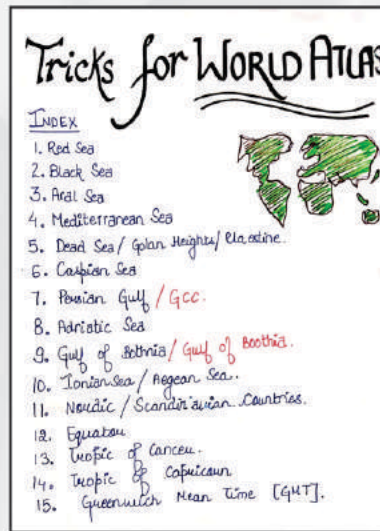 Tricks for WORLD ATLAS
INDEX
1. Red Sea
2. Black Sea
3. Aral Sea
4. Mediterranean Sea
5. Dead Sea / Golan Heights /
6. Caspian Sea
7. Persian Gulf / GCC.
8. Adriatic Sea
9. Gulf of Bothnia / Gulf of Boothia.
10. Ionian Sea / Aegean Sea..
11. Nordic / Scandinavian Countries.
12. Equator
13. Tropic of Cancer.
14. Tropic of Capricorn
15. Greenwich Mean Time [GMT].